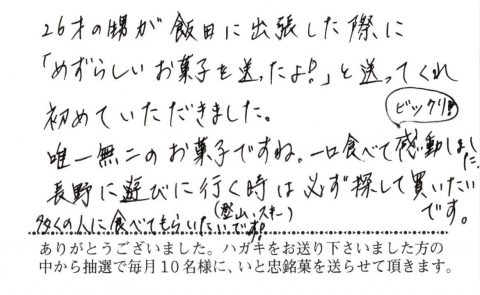 26才の甥が飯田に出張した際に
「めずらしいお菓子を送ったよ!」と送ってくれ
初めていただきました。
ビックリ!
唯一無二のお菓子ですね。一口食べて感動しました。
長野に遊びに行く時は必ず探して買いたいです。
(登山、スキー)
多くの人に食べてもらいたいです!
ありがとうございました。ハガキをお送り下さいました方の
中から抽選で毎月10名様に、いと忠銘菓を送らせて頂きます。